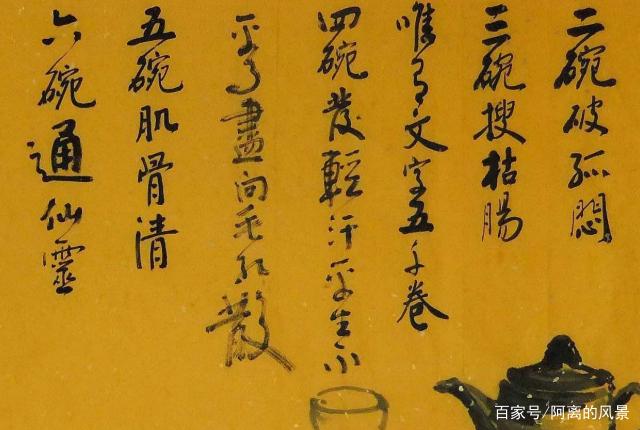 二碗破孤悶
三碗搜枯腸
唯有文字五千卷
四碗發輕汗平生不
平事盡向毛孔散
五碗肌骨清
六碗通仙靈
百家号/阿离的风景